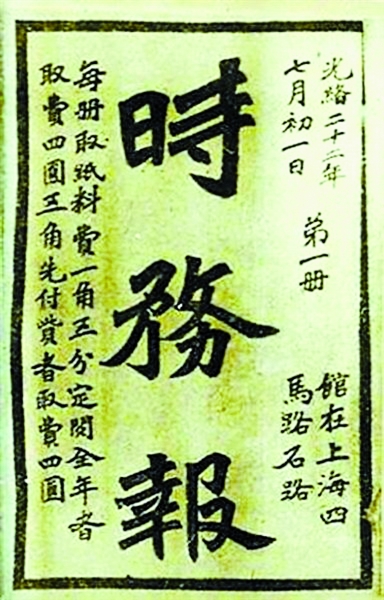 光緒二十二年
七月初一日
第一册
館在上海四
馬路石路
時務報
每册取紙料費一角三分定閱全年者
取費四圓三角先付貲者取費四圓